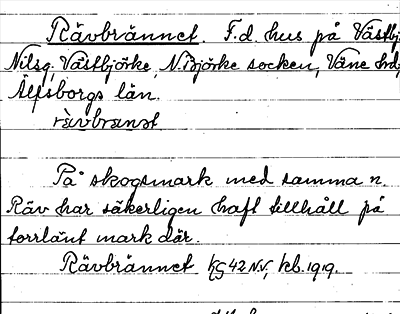 Rävbrännet. F.d. hus på Västbj
Nilsg, Västbjörke, N.Björke socken, Väne hd,
Älfsborgs län.
rävbrænət
På skogsmark med samma n.
Räv har säkerligen haft tillhåll på
torrlänt mark där.
Rävbrännet KG 42 N.V, kb. 1919.